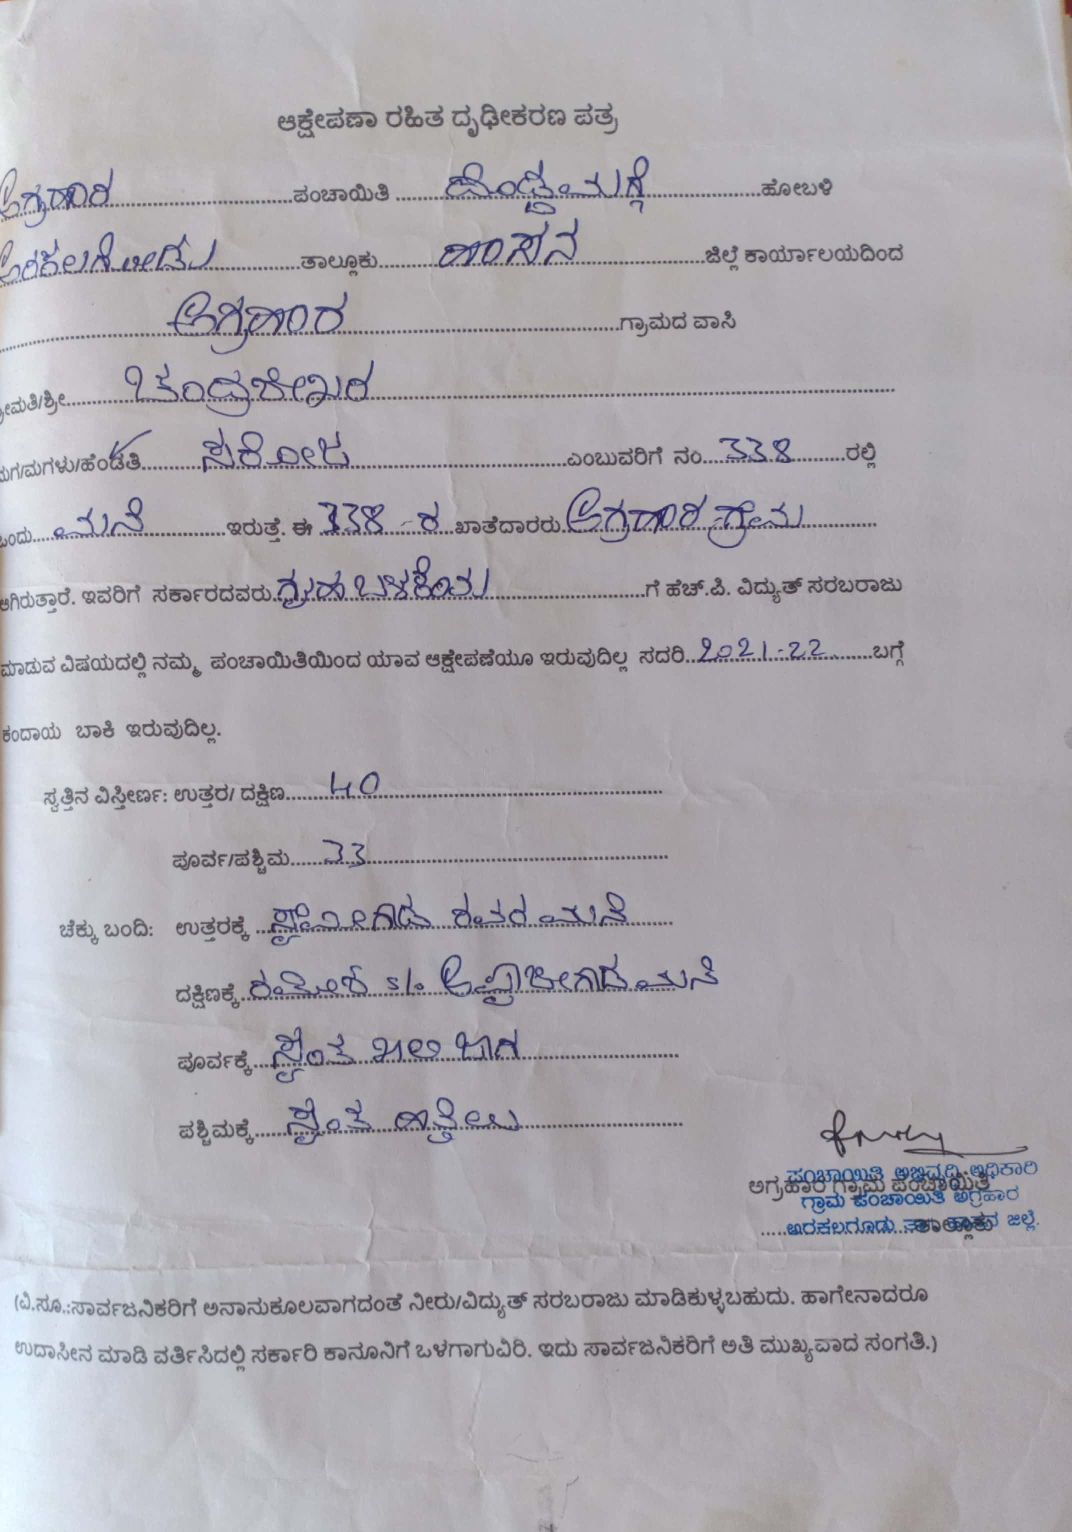 ಆಕ್ಷೇಪಣಾ ರಹಿತ ದೃಢೀಕರಣ ಪತ್ರ
ಅಗ್ರಹಾರ ಪಂಚಾಯಿತಿ ದೊಡ್ಡಮಗ್ಗೆ ಹೋಬಳಿ
ಅರಕಲಗೂಡು ತಾಲ್ಲೂಕು ಹಾಸನ ಜಿಲ್ಲೆ ಕಾರ್ಯಾಲಯದಿಂದ
ಅಗ್ರಹಾರ ಗ್ರಾಮದ ವಾಸಿ
ಶ್ರೀಮತಿ/ಶ್ರೀ ಚಂದ್ರಶೇಖರ
ಮಗ/ಮಗಳು/ಹೆಂಡತಿ ಸರೋಜ ಎಂಬುವರಿಗೆ ನಂ 338 ರಲ್ಲಿ
ಒಂದು ಮನೆ ಇರುತ್ತೆ. ಈ 338-ರ ಖಾತೆದಾರರು ಅಗ್ರಹಾರ ಗ್ರಾಮ
ಆಗಿರುತ್ತಾರೆ. ಇವರಿಗೆ ಸರ್ಕಾರದವರು ಗೃಹ ಬಳಕೆಯ ಗೆ ಹೆಚ್.ಪಿ. ವಿದ್ಯುತ್ ಸರಬರಾಜು
ಮಾಡುವ ವಿಷಯದಲ್ಲಿ ನಮ್ಮ ಪಂಚಾಯಿತಿಯಿಂದ ಯಾವ ಆಕ್ಷೇಪಣೆಯೂ ಇರುವುದಿಲ್ಲ ಸದರಿ 2021-22 ಬಗ್ಗೆ
ಕಂದಾಯ ಬಾಕಿ ಇರುವುದಿಲ್ಲ.
ಸ್ವತ್ತಿನ ವಿಸ್ತೀರ್ಣ: ಉತ್ತರ/ ದಕ್ಷಿಣ 40
ಪೂರ್ವ/ಪಶ್ಚಿಮ 33
ಚೆಕ್ಕು ಬಂದಿ: ಉತ್ತರಕ್ಕೆ ರವರ ಮನೆ
ದಕ್ಷಿಣಕ್ಕೆ ರಮೇಶ s/o ಅಪ್ಪಾಜೀಗೌಡ ಮನೆ
ಪೂರ್ವಕ್ಕೆ ಸ್ವಂತ ಖಾಲಿ ಜಾಗ
ಪಶ್ಚಿಮಕ್ಕೆ ಸ್ವಂತ ಹಿತ್ತಲು
ಪಂಚಾಯಿತಿ ಅಭಿವೃದ್ಧಿ ಅಧಿಕಾರಿ
ಅಗ್ರಹಾರ ಗ್ರಾಮ ಪಂಚಾಯಿತಿ
ಗ್ರಾಮ ಪಂಚಾಯಿತಿ ಅಗ್ರಹಾರ
ಅರಕಲಗೂಡು ತಾಲ್ಲೂಕು ಹಾಸನ ಜಿಲ್ಲೆ.
(ವಿ.ಸೂ.:ಸಾರ್ವಜನಿಕರಿಗೆ ಅನಾನುಕೂಲವಾಗದಂತೆ ನೀರು/ವಿದ್ಯುತ್ ಸರಬರಾಜು ಮಾಡಿಕುಳ್ಳಬಹುದು. ಹಾಗೇನಾದರೂ
ಉದಾಸೀನ ಮಾಡಿ ವರ್ತಿಸಿದಲ್ಲಿ ಸರ್ಕಾರಿ ಕಾನೂನಿಗೆ ಒಳಗಾಗುವಿರಿ. ಇದು ಸಾರ್ವಜನಿಕರಿಗೆ ಅತಿ ಮುಖ್ಯವಾದ ಸಂಗತಿ.)